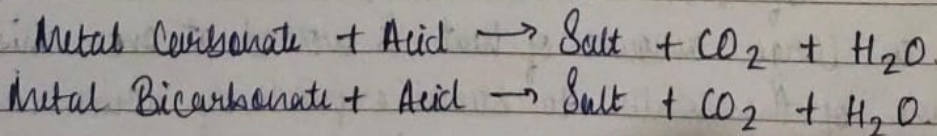 Metal Carbonate + Acid → Salt + CO₂ + H₂O.
Metal Bicarbonate + Acid → Salt + CO₂ + H₂O.